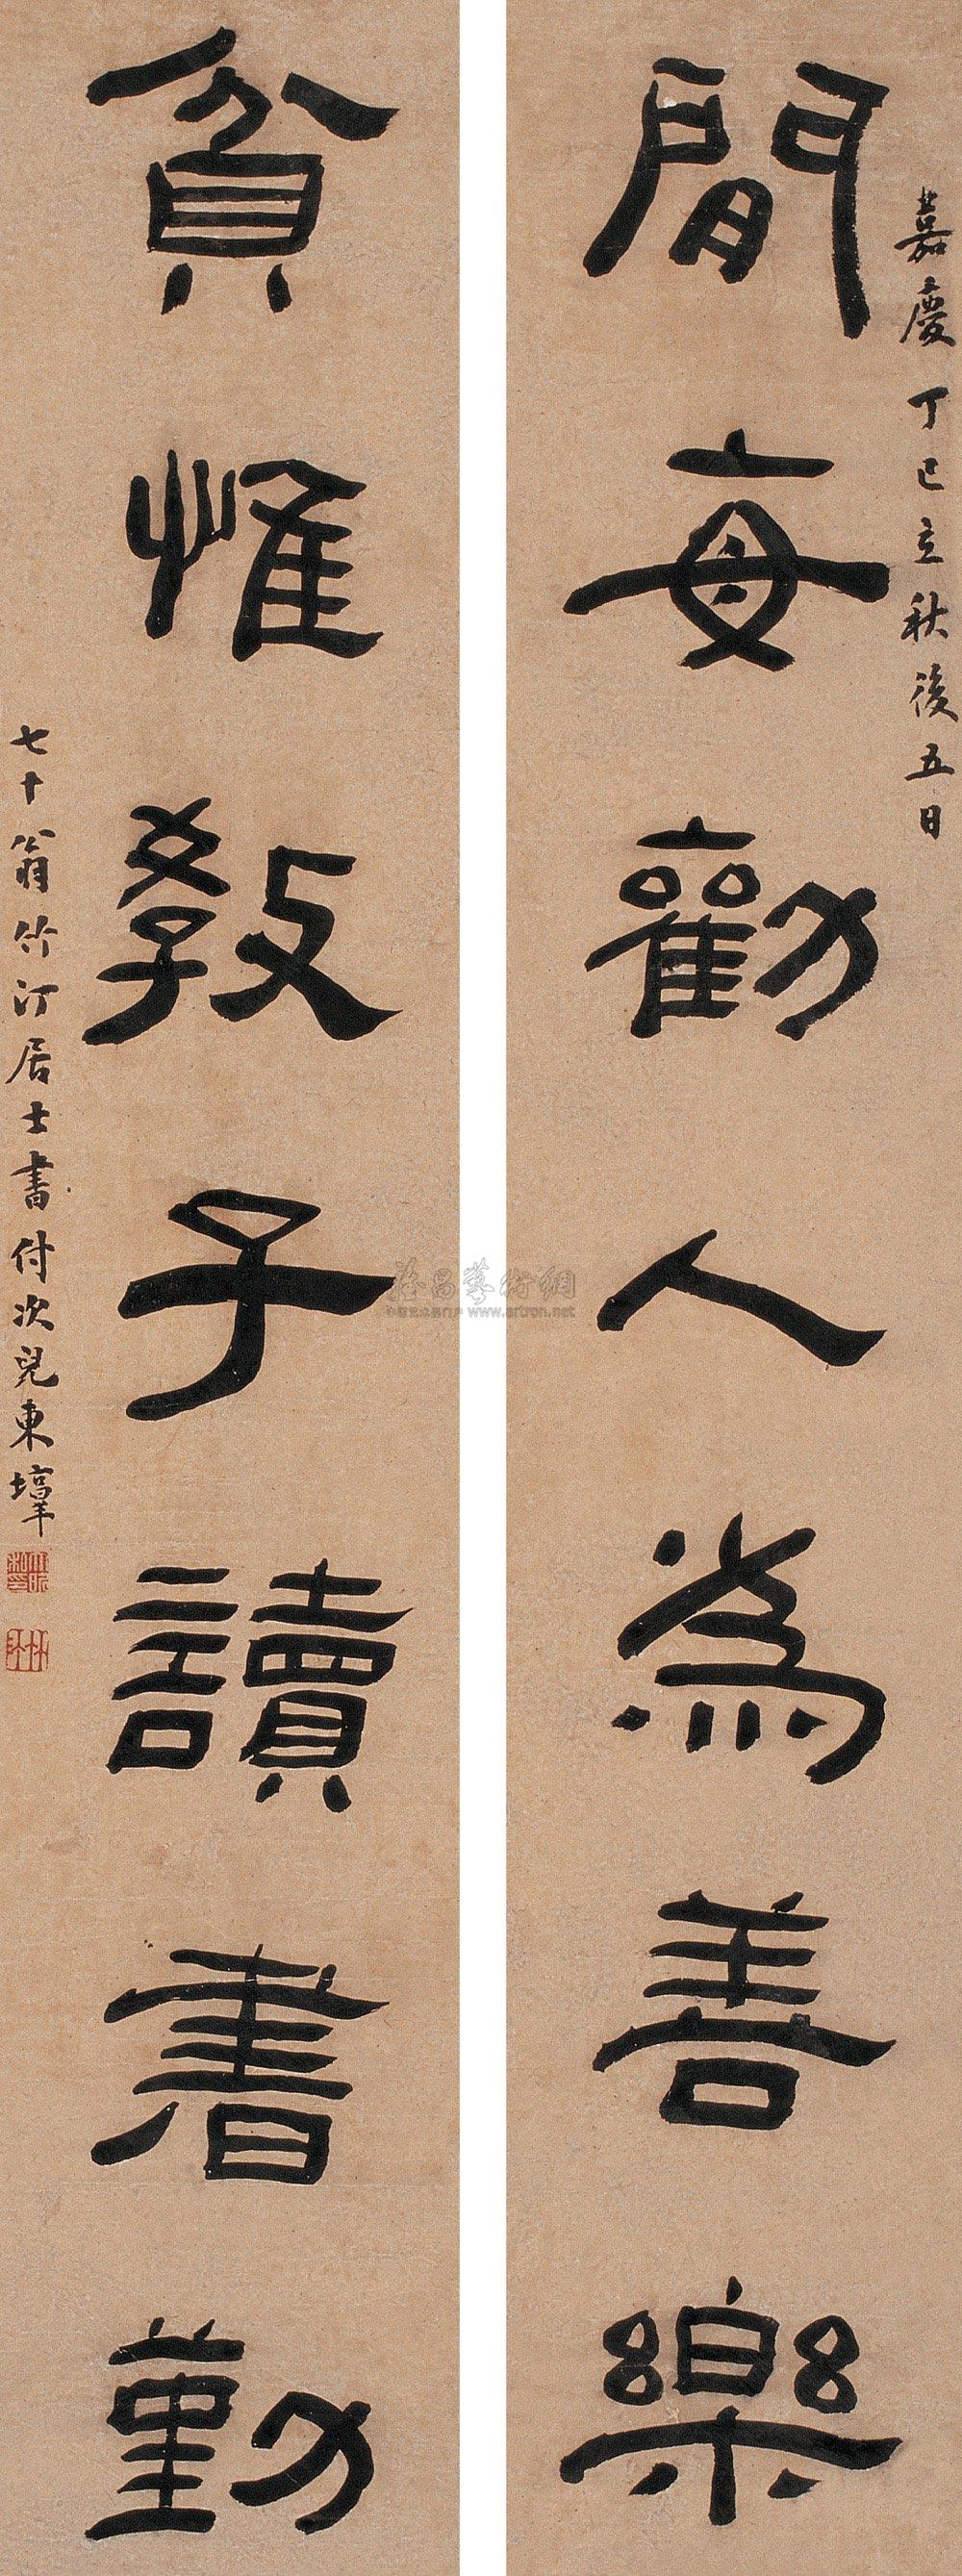 嘉慶丁巳立秋後五日
閒每勸人為善樂
貧惟教子讀書勤
七十翁竹汀居士書付次兒東塾
www.artron.net